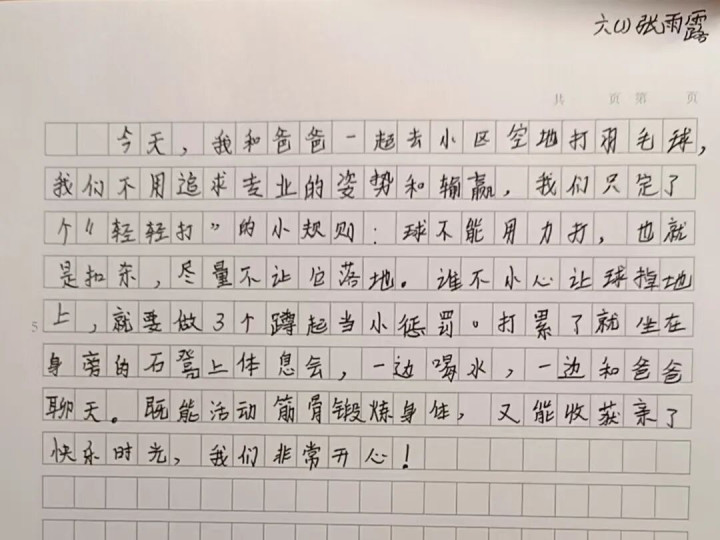 六(1)张雨露
共 页 第 页
今天，我和爸爸一起去小区空地打羽毛球，
我们不用追求专业的姿势和输赢，我们只定了
个“轻轻打”的小规则：球不能用力打，也就
是扣杀，尽量不让它落地。谁不小心让球掉地
5 上，就要做3个蹲起当小惩罚。打累了就坐在
身旁的石凳上休息会，一边喝水，一边和爸爸
聊天。既能活动筋骨锻炼身体，又能收获亲子
快乐时光，我们非常开心！